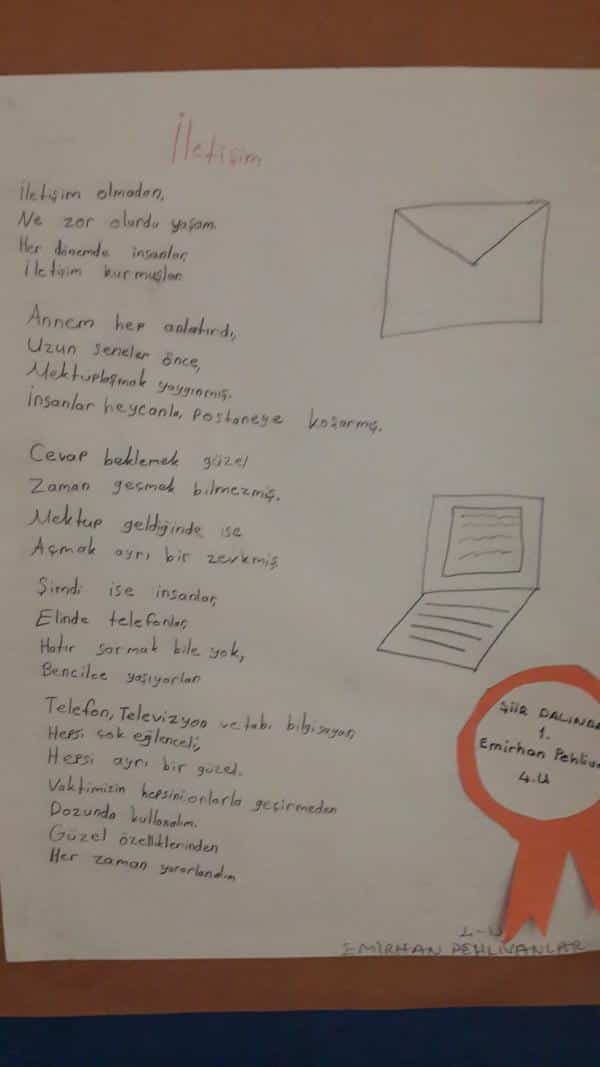 İletişim
İletişim olmadan,
Ne zor olurdu yaşam.
Her dönemde insanlar,
İletişim kurmuşlar.
Annem hep anlatırdı,
Uzun seneler önce,
Mektuplaşmak yaygınmış.
İnsanlar heycanla, postaneye koşarmış.
Cevap beklemek güzel
Zaman geçmek bilmezmiş.
Mektup geldiğinde ise
Açmak ayrı bir zevkmiş
Şimdi ise insanlar,
Elinde telefonlar,
Hatır sormak bile yok,
Bencilce yaşıyorlar
Telefon, Televizyon ve tabi bilgisayar,
Hepsi çok eğlenceli,
Hepsi ayrı bir güzel.
Vaktimizin hepsini onlarla geçirmeden
Dozunda kullanalım.
Güzel özelliklerinden
Her zaman yararlanalım
ŞİİR DALINDA
1.
Emirhan Pehliva
4.U
4-U
EMİRHAN PEHLİVANLAR